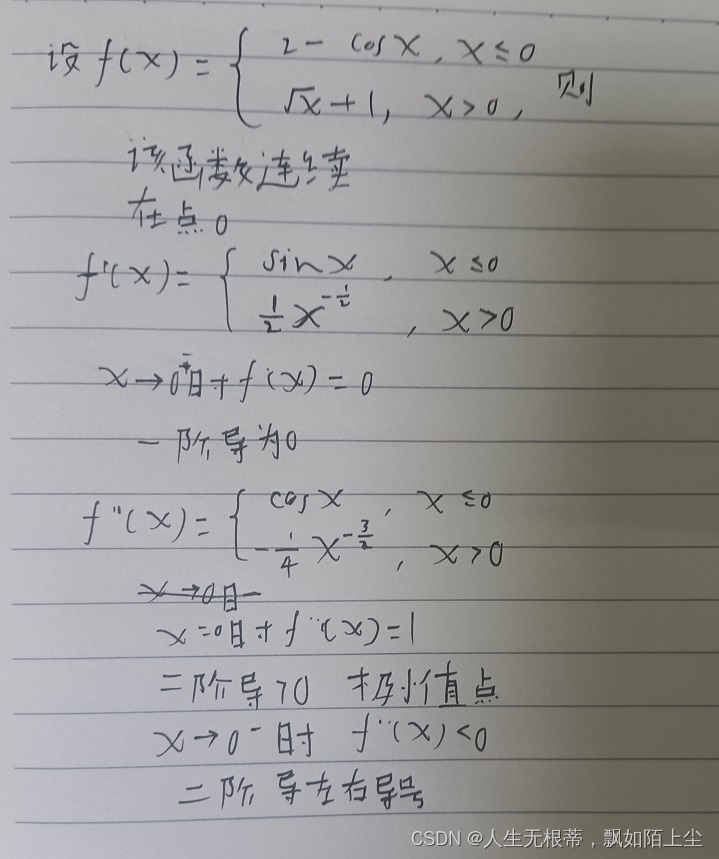 设 f(x) = { 2 - cosx, x ≤ 0
√x + 1, x > 0, 则
该函数连续
在点0
f'(x) = { sinx, x ≤ 0
1/2 x^{-1/2}, x > 0
x → 0⁻时 f'(x) = 0
一阶导为0
f''(x) = { cosx, x ≤ 0
-1/4 x^{-3/2}, x > 0
x → 0时
x = 0时 f''(x) = 1
二阶导>0 极小值点
x → 0 - 时 f''(x) > 0
二阶导左右导号
CSDN @人生无根蒂，飘如陌上尘